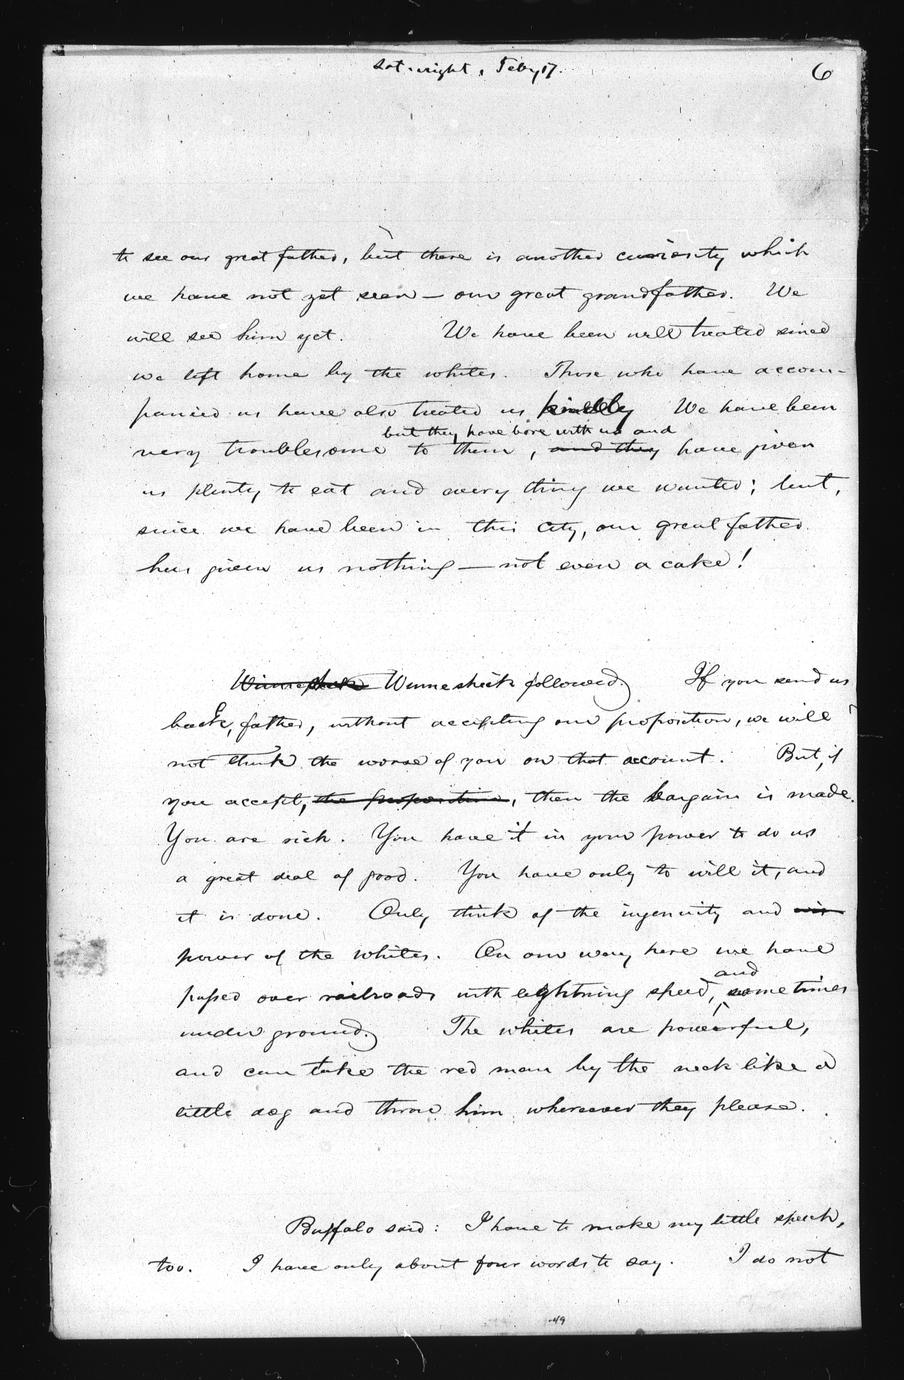 Sat. night, Feby 17.
6
to see our great father, but there is another curiosity which
we have not yet seen — our great grandfather. We
will see him yet. We have been well treated since
we left home by the whites. Those who have accom-
panied us have also treated us kindly We have been
but they have bore with us and
very troublesome to them, and they have given
us plenty to eat and every thing we wanted; but,
since we have been in this city, our great father
has given us nothing — not even a cake!
Winnesheek Winnesheek followed. If you send us
back, father, without accepting our proposition, we will
not think the worse of you on that account. But, if
you accept, the proposition, then the bargain is made.
You are rich. You have it in your power to do us
a great deal of good. You have only to will it, and
it is done. Only think of the ingenuity and
power of the whites. On our way here we have
and
passed over railroads with lightning speed, sometimes
under ground. The whites are powerful,
and can take the red man by the neck like a
little dog and throw him wherever they please.
Buffalo said: I have to make my little speech,
too. I have only about four words to say. I do not
49